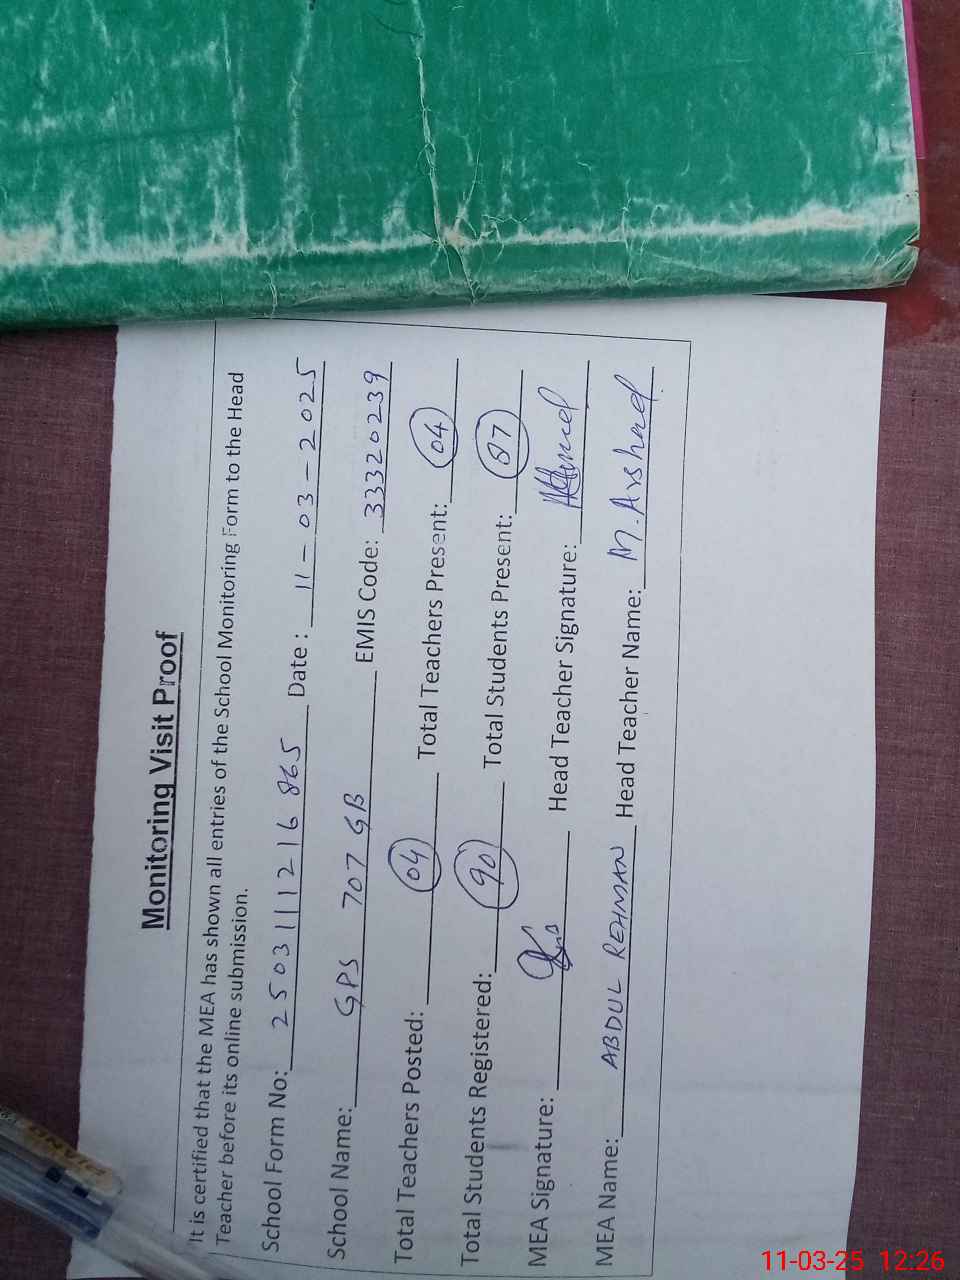 Monitoring Visit Proof
It is certified that the MEA has shown all entries of the School Monitoring Form to the Head
Teacher before its online submission.
School Form No: 2503111216865 Date : 11-03-2025
School Name: GPS 707 GB EMIS Code: 33320239
Total Teachers Posted: 04 Total Teachers Present: 04
Total Students Registered: 90 Total Students Present: 87
MEA Signature: Head Teacher Signature:
MEA Name: ABDUL REHMAN Head Teacher Name: M. Arshad
PIANO
11-03-25 12:26